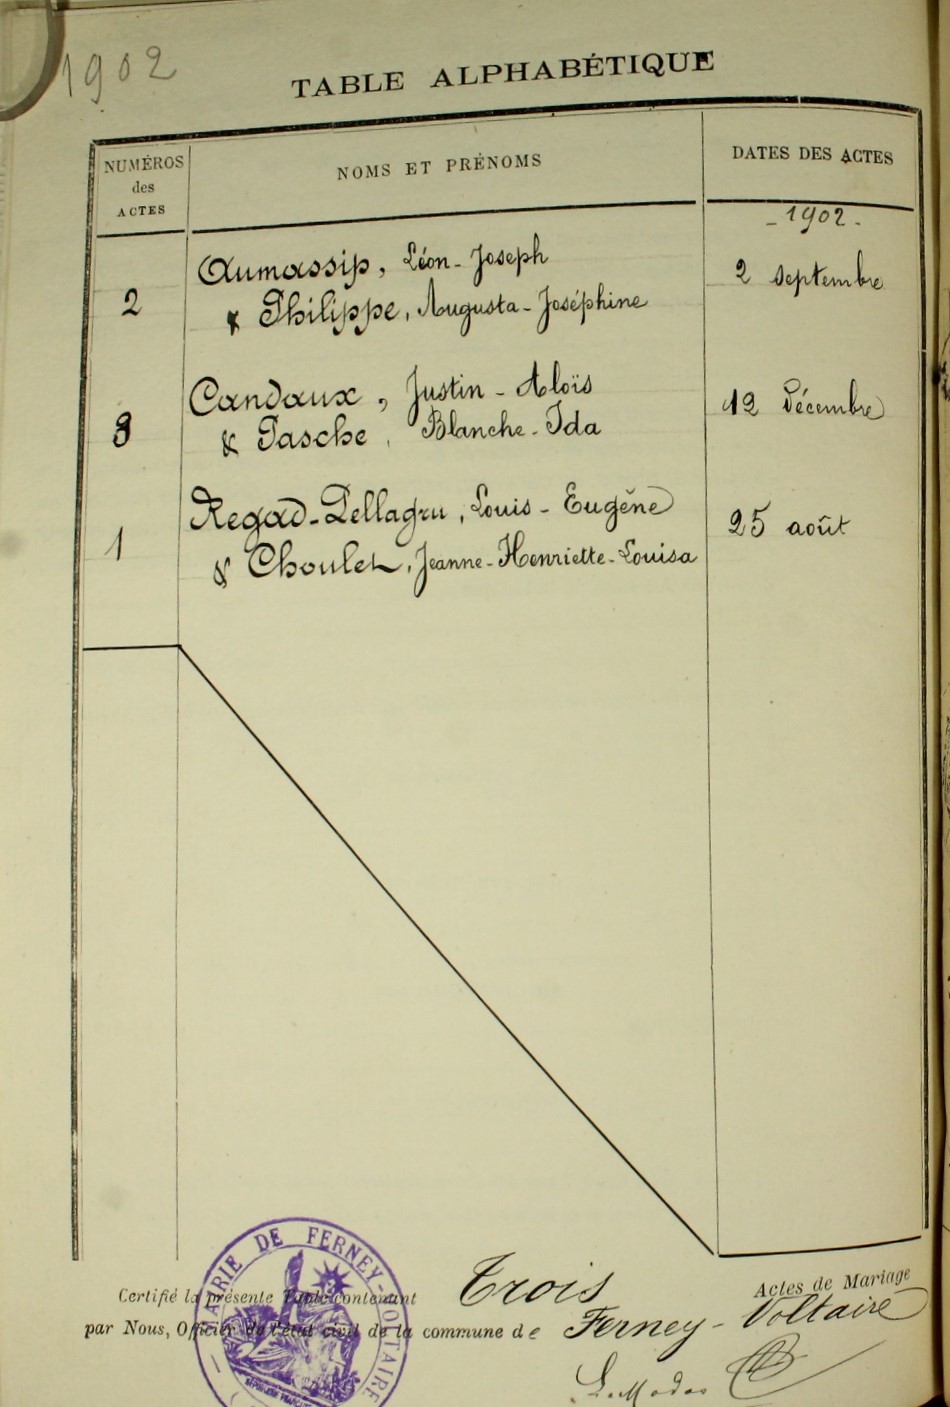 1902
TABLE ALPHABÉTIQUE
NUMÉROS des ACTES
NOMS ET PRÉNOMS
DATES DES ACTES
- 1902 -
Aumassip, Léon-Joseph
2 & Philippe, Augusta-Joséphine 2 Septembre
Candaux, Justin-Aloïs
3 & Pasche, Blanche-Ida 12 Décembre
Regad-Pellagru, Louis-Eugène
1 & Choulet, Jeanne-Henriette-Louisa 25 août
Certifié la présente Table contenant Trois Actes de Mariage
par Nous, Officier de l'état civil de la commune de Ferney-Voltaire
MAIRIE DE FERNEY-VOLTAIRE